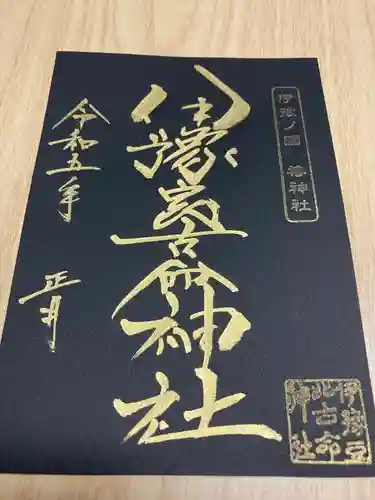 伊豫ノ國 椿神社
伊豫豆
比古命
神社
伊豫豆比古命神社
令和五年 正月